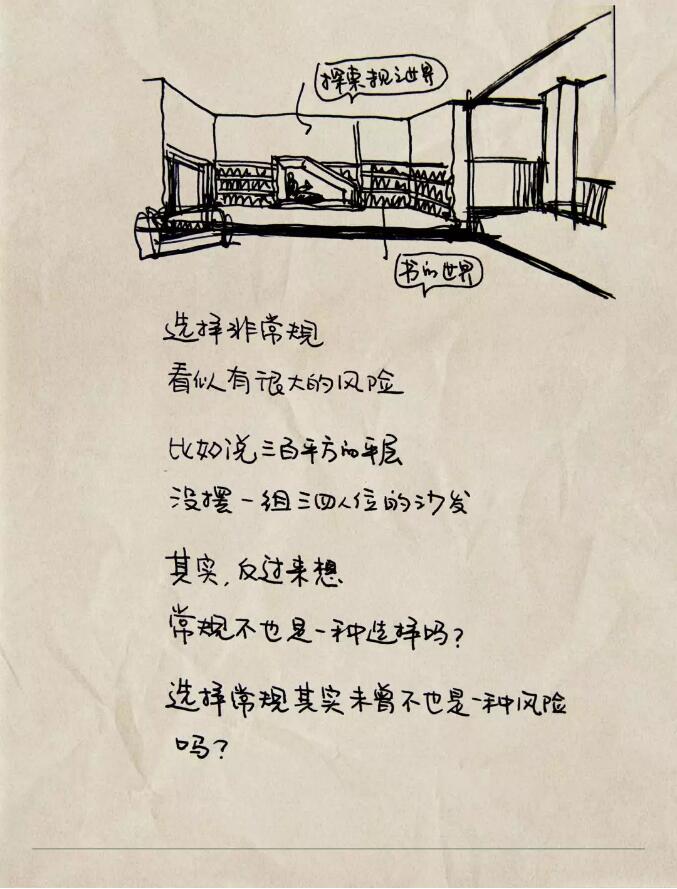 探索视之世界
书的世界
选择非常规
看似有很大的风险
比如说三百平方的平层
没摆一组三四人位的沙发
其实,反过来想
常规不也是一种选择吗?
选择常规其实未曾不也是一种风险
吗?